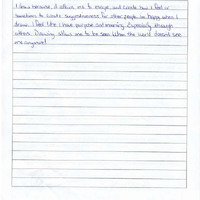 I draw because, it allows me to escape and create how I feel or
sometimes to create suggestiveness for other people. Im happy when I
draw. I feel like I have purpose and meaning. Especially through
others. Drawing allows me to be seen when the world doesnt see
me anymore!